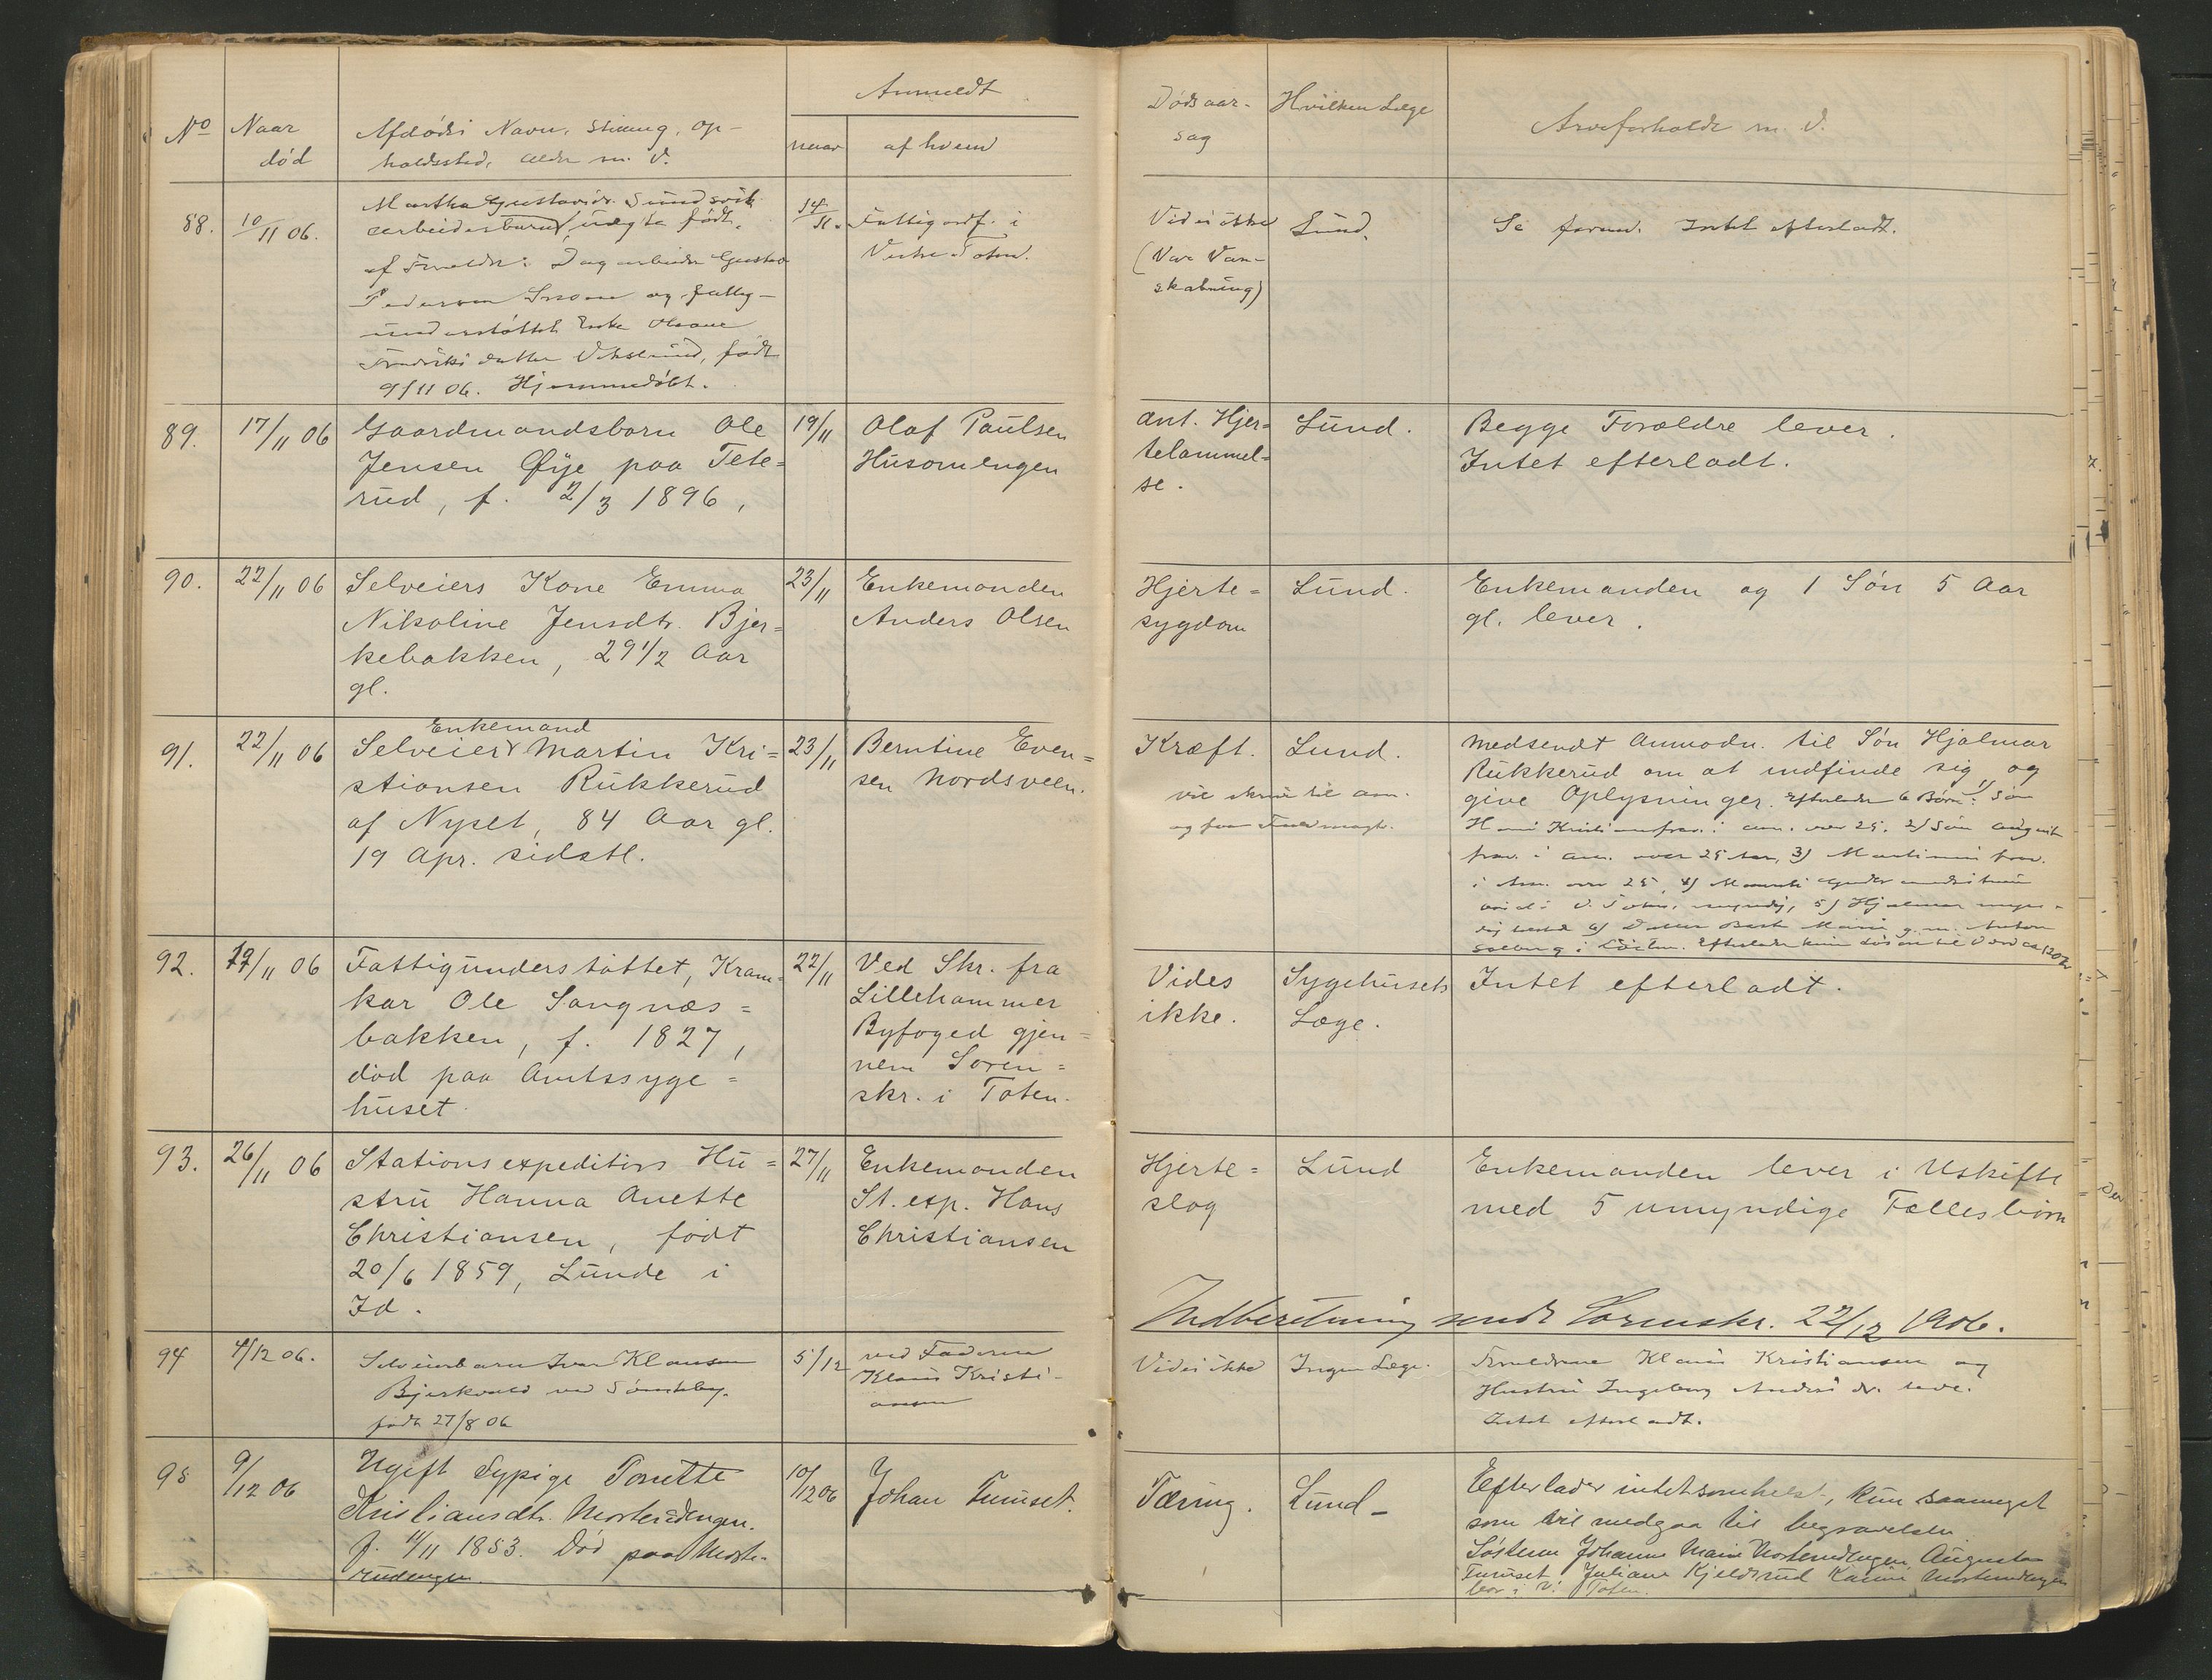 Anmeldt
No
Naar
død
Afdødes Navn, Stilling, Op-
holdssted, Alder m. V.
naar
af hvem
Dødsaar-
sag
Hvilken Læge
Arveforholde m. V.
88.
10/11 06.
Martha Gustavsdr. Sundsvik
Arbeidersbarn, uægte født
af Forældre: Dagarbeider Gustav
Pedersen og fattig-
understøttet Enke
datter, født
9/11 06. Hjemmedøbt.
14/11.
Fattigordf. i
Vestre Toten.
Vides ikke
(Var Van-
skabning)
Lund.
Se foran. Intet efterladt.
89.
17/11 06
Gaardmandsbarn Ole
Jensen Øije paa Tete=
rud, f. 2/3 1896,
19/11
Olaf Paulsen
Husomengen
Ant. Hjer=
telammel=
se.
Lund.
Begge Forældre lever.
Intet efterladt.
90.
22/11 06
Selveiers Kone Emma
Nikoline Jensdtr. Bjer=
kebakken, 29 1/2 Aar
gl.
23/11
Enkemanden
Anders Olsen
Hjerte=
sygdom
Lund.
Enkemanden og 1 Søn 5 Aar
gl. lever.
91.
22/11 06
Enkemand
Selveier Martin Kri=
stiansen Rukkerud
af Nyset, 84 Aar gl.
19 Apr. sidstl.
23/11
Berntine Even=
sen Nordsveen.
Kræft.
Lund.
vil skrive til am.
og faa Fuldmagt.
Medsendt Anmodn. til Søn Hjalmar
Rukkerud om at indfinde sig og
give Oplysninger. Efterlader 6 Børn: 1) Søn
Kristiansen i am. over 25. 2) Søn August
i am. over 25 Aar, 3)
i Am. over 25, 4)
V. Toten, myndig, 5) Hjalmar myn-
dig 6) Datter Marie g. m. Anton
Solberg i. Efterlader kun Løsøre til Værd ca
92.
19/11 06
Fattigunderstøttet, Kram=
kar Ole Sangnæs=
bakken, f. 1827,
død paa Amtssyge=
huset.
22/11
Ved Skr. fra
Lillehammer
Byfoged gjen=
nem Soren=
skr. i Toten.
Vides
ikke.
Sygehusets
Læge.
Intet efterladt.
93.
26/11 06
Stationsexpeditørs Hu=
stru Hanna Anette
Christiansen, født
20/6 1859, Lunde i
Id.
27/11
Enkemanden
St. exp. Hans
Christiansen
Hjerte=
slag
Lund
Enkemanden lever i Uskifte
med 5 umyndige Fællesbørn
Indberetning sendt Sorenskr. 22/12 1906.
94
4/12 06.
Selveierbarn Ivar Klausen
Bjerkvold ved Sønsteby.
født 27/8 06
5/12
ved Faderen
Klaus Kristi-
ansen
Vides ikke
Ingen Læge.
Forældrene Klaus Kristiansen og
Hustru Ingeborg Andersdr. lever.
Intet efterladt.
95
9/12 06
Ugift Sypige Torette
Kristiansdtr. Mosterudengen.
f. 11/11 1853. Død paa Moste-
rudengen.
10/12 06
Johan Furuset.
Tæring.
Lund-
Efterlader intetsomhelst, kun saameget
som vil medgaa til begravelsen.
Søstrene Johanne Marie Mosterudengen Augusta
Furuset Juliane Kjeldsrud Karine Mosterudengen
bor i V. Toten.